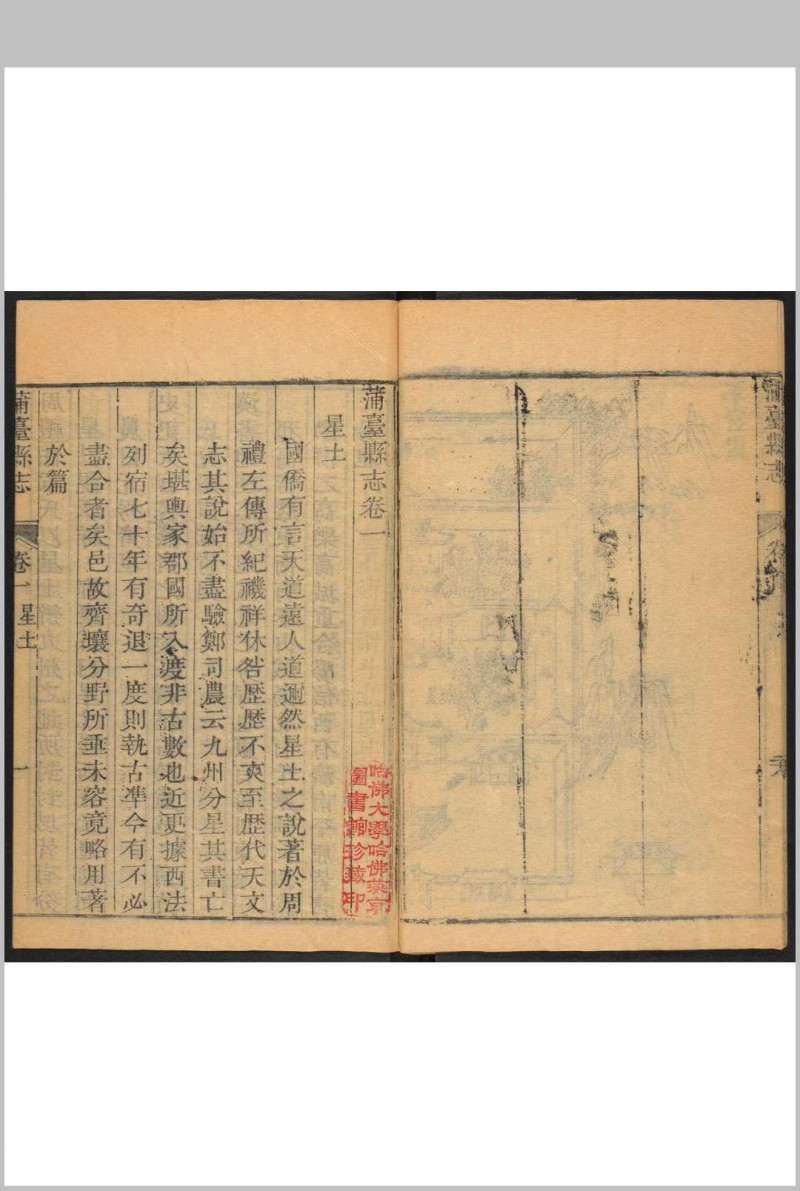 蒲臺縣志
蒲臺縣志卷一
星土
國僑有言天道遠人道邇然星土之說著於周
禮左傳所紀禨祥休咎歷歷不爽至歷代天文
志其說始不盡驗鄭司農云九州分星其書亡
矣堪輿家郡國所入渡非古數也近更據西法
列宿七十年有奇退一度則執古準今有不必
盡合者矣邑故齊壤分野所垂未容竟略用著
於篇
蒲臺縣志
卷一
星土
一
哈佛大學哈佛燕京
圖書館珍藏印